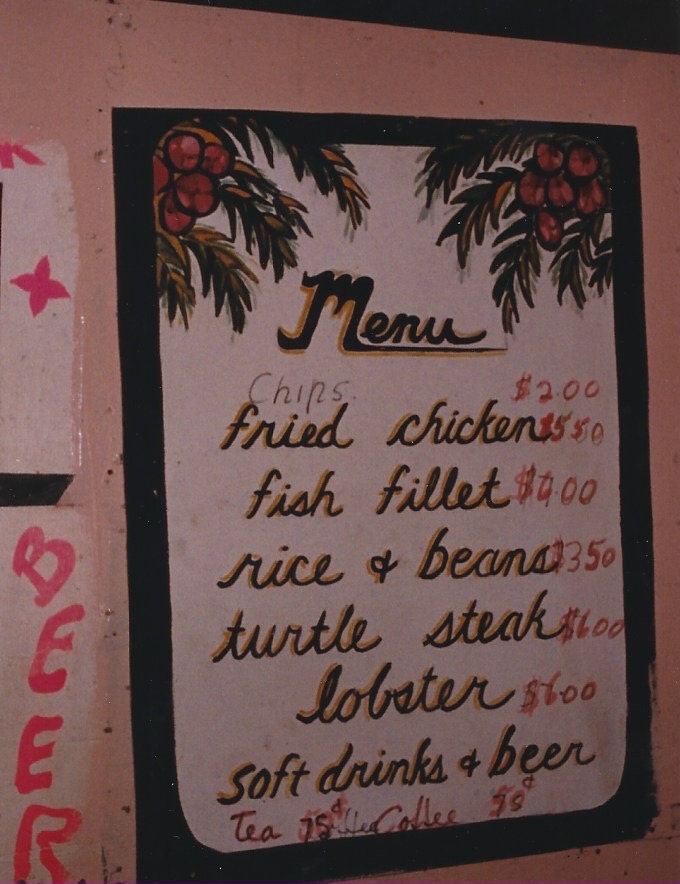 Menu
Chips $2.00
fried chicken $5.50
fish fillet $4.00
rice & beans $3.50
turtle steak $6.00
lobster $6.00
soft drinks & beer
Tea 75¢ Coffee 75¢
BEER